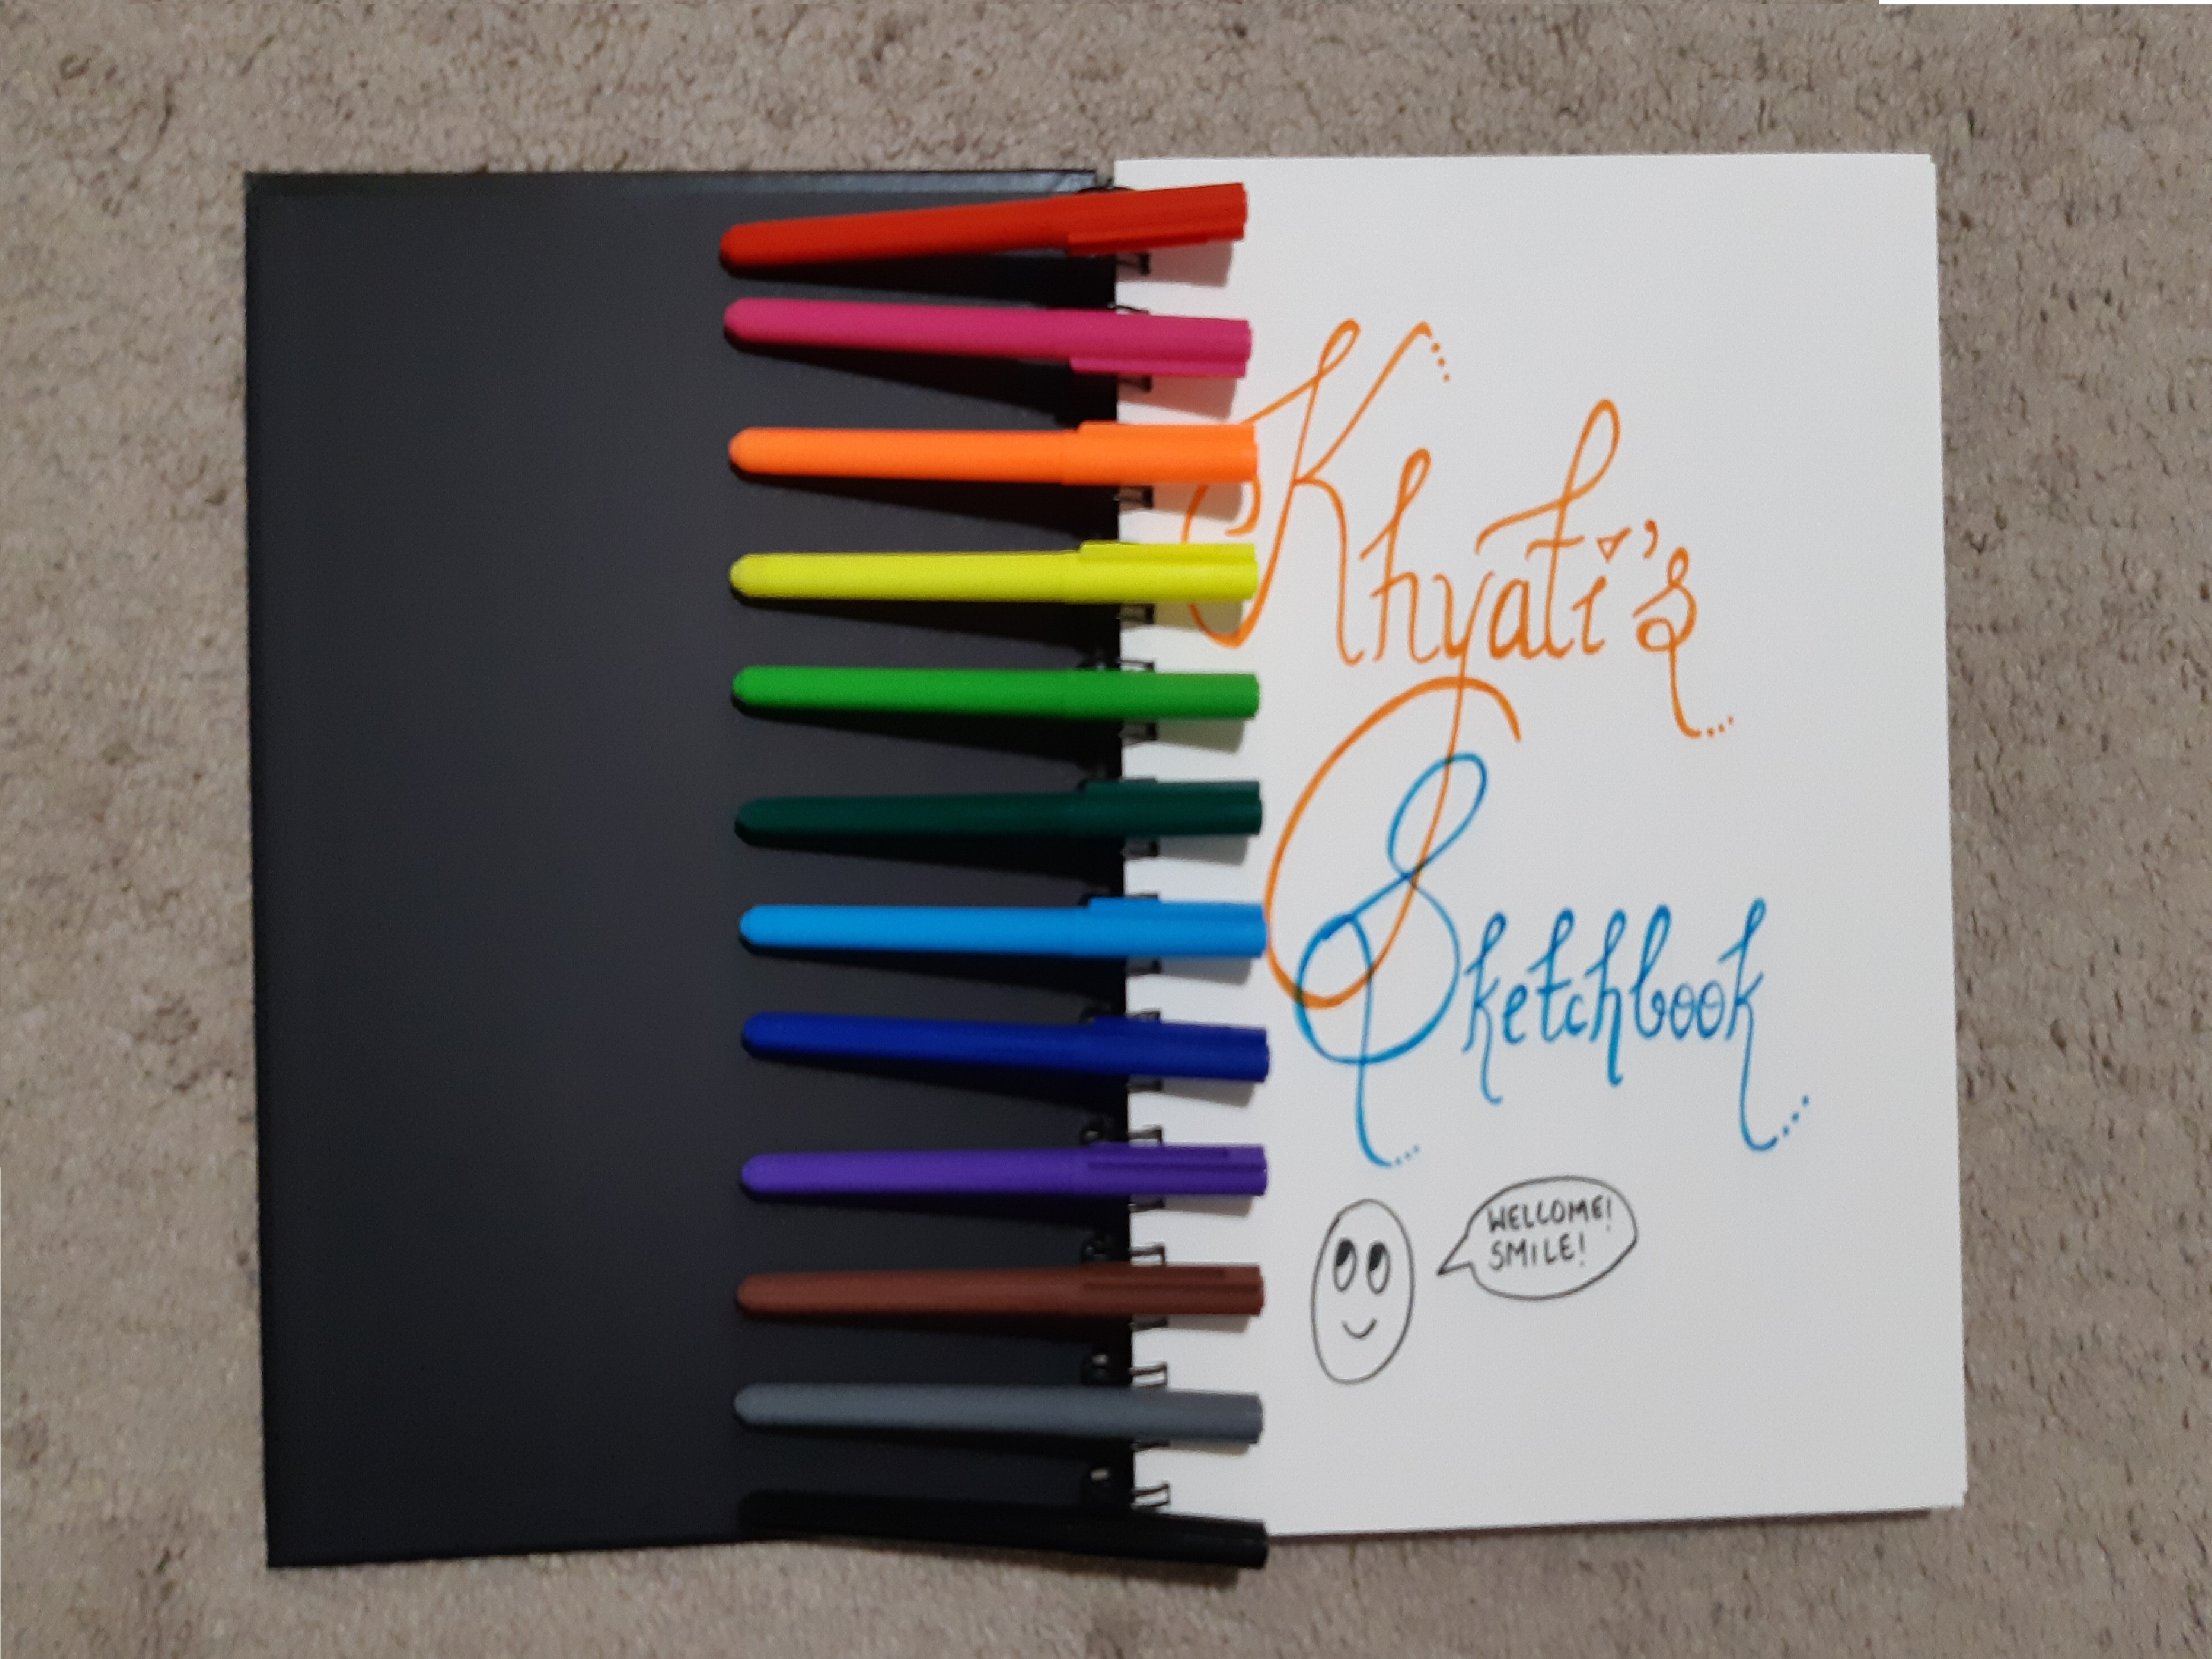 Khyati's
Sketchbook
WELCOME!
SMILE!